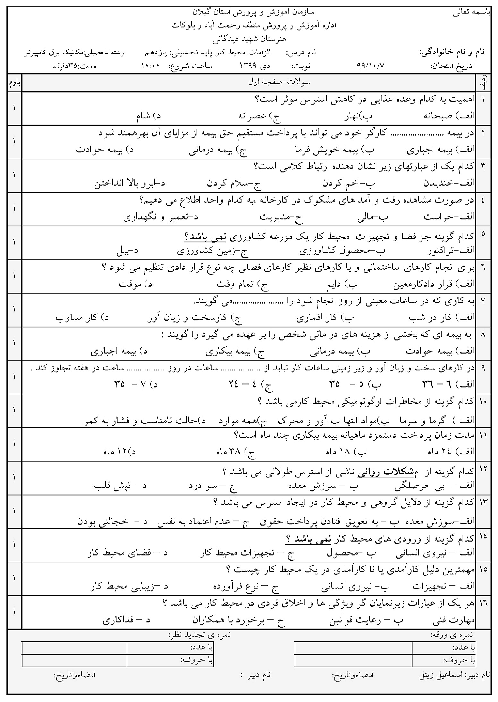 باسمه تعالی
سازمان آموزش و پرورش استان گیلان
اداره آموزش و پرورش منطقه رحمت آباد و بلوکات
هنرستان شهید
نام و نام خانوادگی: نام درس: الزامات محیط کار پایه تحصیلی: یازدهم رشته تحصیلی:
تاریخ امتحان: ۹۹/۱۰/۷ نوبت: دی ۱۳۹۹ ساعت شروع: ۱۰:۰۰
ردیف سوالات صفحه اول بارم
۱ اهمیت به کدام وعده غذایی در کاهش استرس موثر است؟ ۱
الف) صبحانه ب)نهار ج) عصرانه د) شام
۲ در بیمه ................ کارگر خود می تواند با پرداخت مستقیم حق بیمه از مزایای آن بهرهمند شود ۱
الف) بیمه اجباری ب) بیمه خویش فرما ج) بیمه درمانی د) بیمه حوادث
۳ کدام یک از عبارتهای زیر نشان دهنده ارتباط کلامی است؟ ۱
الف-خندیدن ب-اخم کردن ج-سلام کردن د-ابرو بالا انداختن
۴ در صورت مشاهده رفت و آمد های مشکوک در کارخانه به کدام واحد اطلاع می دهیم؟ ۱
الف-حراست ب-مالی ج-مدیریت د-تعمیر و نگهداری
۵ کدام گزینه جز فضا و تجهیزات محیط کار یک مزرعه کشاورزی نمی باشد؟ ۱
الف-تراکتور ب-محصول کشاورزی ج-زمین کشاورزی د-بیل
۶ برای انجام کارهای ساختمانی و یا کارهای نظیر کارهای فصلی چه نوع قرار دادی تنظیم می شود ؟ ۱
الف) قرار دادکارمعین ب) دایم ج) تمام وقت د) موقت
۷ به کاری که در ساعات معینی از روز انجام شود را ................می گویند. ۱
الف) کار در شب ب) کار اقماری ج) کارسخت و زیان آور د) کار متناوب
۸ به بیمه ای که بخشی از هزینه های درمانی شخص را بر عهده می گیرد را گویند : ۱
الف) بیمه حوادث ب) بیمه درمانی ج) بیمه بیکاری د) بیمه اجباری
۹ در کارهای سخت و زیان آور و زیر زمینی ساعات کار نباید از ................ ساعات در روز ................ ساعت در هفته تجاوز کند . ۱
الف) ۶ – ۳۶ ب) ۵ – ۳۵ ج) ۴ – ۲۴ د) ۷ – ۳۵
۱۰ کدام گزینه از مخاطرات ارگونومیکی محیط کارمی باشد ؟ ۱
الف ) گرما و سرما ب)مواد التهاب آور و محرک ج)همه موارد د)حالت نامناسب و فشار به کمر
۱۱ مدت زمان پرداخت دستمزد ماهیانه بیمه بیکاری چند ماه است؟ ۱
الف) ۲۴ ماه ب) ۱۸ ماه ج) ۳۸ ماه د)۱۲ ماه
۱۲ کدام گزینه از مشکلات روانی ناشی از استرس طولانی می باشد ؟ ۱
الف – بی حوصلگی ب – سوزش معده ج – سر درد د – تپش قلب
۱۳ کدام گزینه از دلایل گروهی و محیط کار در ایجاد استرس می باشد ؟ ۱
الف–سوزش معده ب – به تعویق افتادن پرداخت حقوق ج – عدم اعتماد به نفس د – خجالتی بودن
۱۴ کدام گزینه از ورودی های محیط کار نمی باشد ؟ ۱
الف – نیروی انسانی ب –محصول ج – تجهیزات محیط کار د – فضای محیط کار
۱۵ مهمترین دلیل کارآمدی یا نا کارآمدی در یک محیط کار چیست ؟ ۱
الف – تجهیزات ب–نیروی انسانی ج – نوع فرآورده د –زیبایی محیط کار
۱۶ هر یک از عبارات زیرنمایان گر ویژگی ها و اخلاق فردی در محیط کار می باشد ؟ ۱
مهارت فنی ب – رعایت قوانین ج – برخورد با همکاران د – فداکاری
نمره ی ورقه: نمره ی تجدید نظر:
با عدد: با عدد:
با حروف: با حروف:
نام دبیر: اسماعیل امضاء وتاریخ: نام دبیر : امضاءوتاریخ: